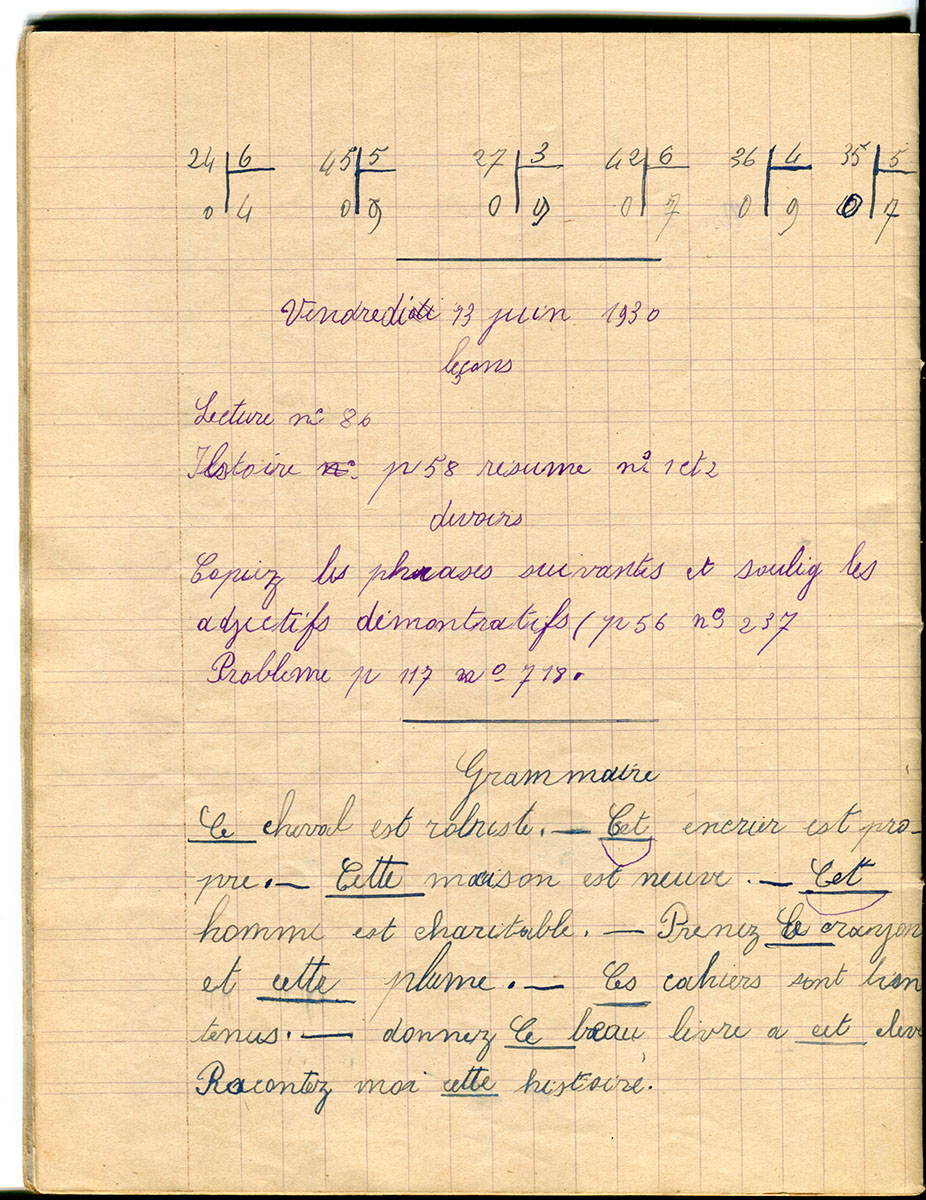 24 | 6 45 | 5 27 | 3 42 | 6 36 | 4 35 | 5
0 | 4 0 | 9 0 | 9 0 | 7 0 | 9 0 | 7
Vendredi 13 juin 1930
leçons
Lecture n° 80
Histoire n° p 58 resume n° 1 et 2
devoirs
Copiez les phrases suivantes et soulig les
adjectifs démontratifs (p 56 n° 237
Probleme p 117 n° 718.
Grammaire
Ce cheval est robuste. — Cet encrier est pro-
pre. — Cette maison est neuve. — Cet
homme est charitable. — Prenez Ce crayon
et cette plume. — Ces cahiers sont bien
tenus. — donnez Ce beau livre a cet elev
Racontez moi cette histoire.